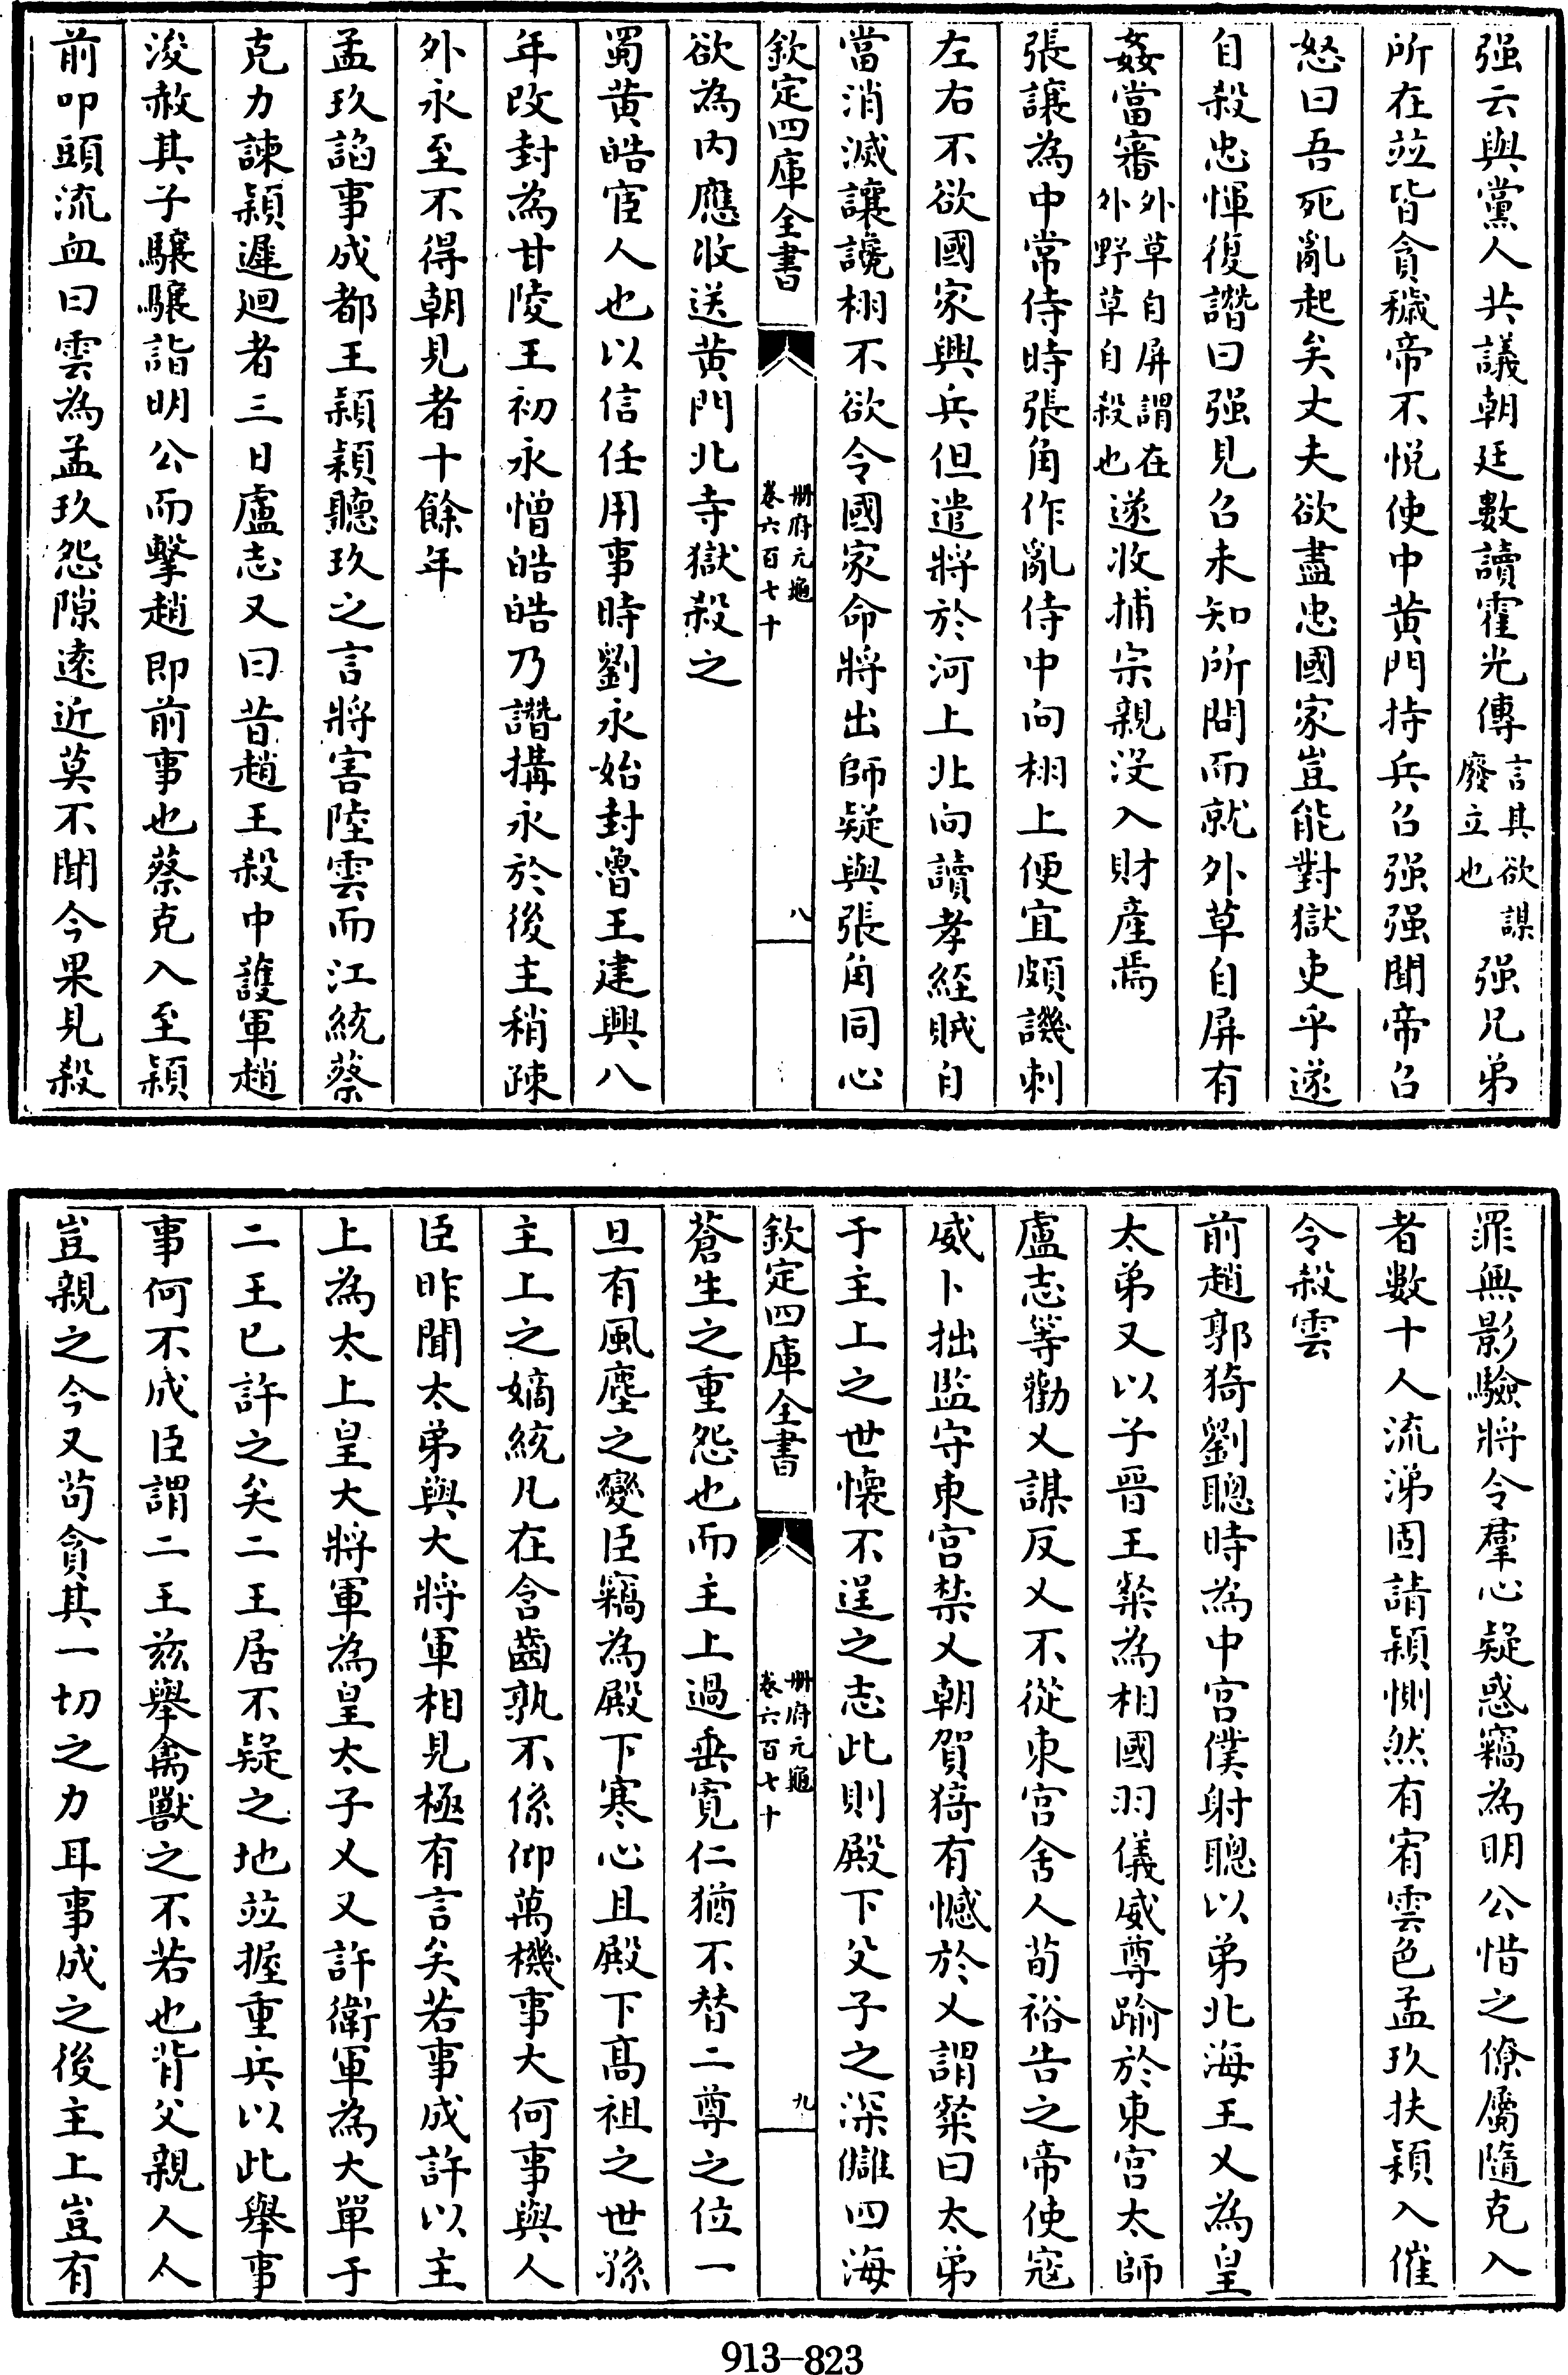 强云與黨人共議朝廷數讀霍光傳言其欲謀廢立也强兄弟
所在竝皆貪穢帝不悅使中黄門持兵召强强聞帝召
怒曰吾死亂起矣丈夫欲盡忠國家豈能對獄吏乎遂
自殺忠惲復譖曰强見召未知所問而就外草自屏有
姦當審外草自屏謂在外野草自殺也遂收捕宗親没入財産焉
張讓為中常侍時張角作亂侍中向栩上便宜頗譏刺
左右不欲國家興兵但遣將於河上北向讀孝經賊自
當消滅讓讒栩不欲令國家命將出師疑與張角同心
欽定四庫全書
册府元龜
卷六百七十
八
欲為内應收送黄門北寺獄殺之
蜀黄皓宦人也以信任用事時劉永始封魯王建興八
年改封為甘陵王初永憎皓皓乃譖搆永於後主稍疎
外永至不得朝見者十餘年
孟玖諂事成都王穎穎聽玖之言將害陸雲而江統蔡
克力諫穎遲廻者三日盧志又曰昔趙王殺中護軍趙
浚赦其子驤驤詣明公而擊趙即前事也蔡克入至穎
前叩頭流血曰雲為孟玖怨隙逺近莫不聞今果見殺
罪無影驗將令羣心疑惑竊為明公惜之僚屬隨克入
者數十人流涕固請穎惻然有宥雲色孟玖扶穎入催
令殺雲
前趙郭猗劉聰時為中宫僕射聰以弟北海王乂為皇
太弟又以子晉王粲為相國羽儀威尊踰於東宫太師
盧志等勸乂謀反乂不從東宫舍人荀裕告之帝使寇
威卜拙監守東宫禁乂朝賀猗有憾於乂謂粲曰太弟
于主上之世懐不逞之志此則殿下父子之深讎四海
欽定四庫全書
册府元龜
卷六百七十
九
蒼生之重怨也而主上過垂寛仁猶不替二尊之位一
旦有風塵之變臣竊為殿下寒心且殿下髙祖之世孫
主上之嫡統凡在含齒孰不係仰萬機事大何事與人
臣昨聞太弟與大將軍相見極有言矣若事成許以主
上為太上皇大將軍為皇太子乂又許衛軍為大單于
二王已許之矣二王居不疑之地竝握重兵以此舉事
事何不成臣謂二王兹舉禽獸之不若也背父親人人
豈親之今又茍貪其一切之力耳事成之後主上豈有
913-823